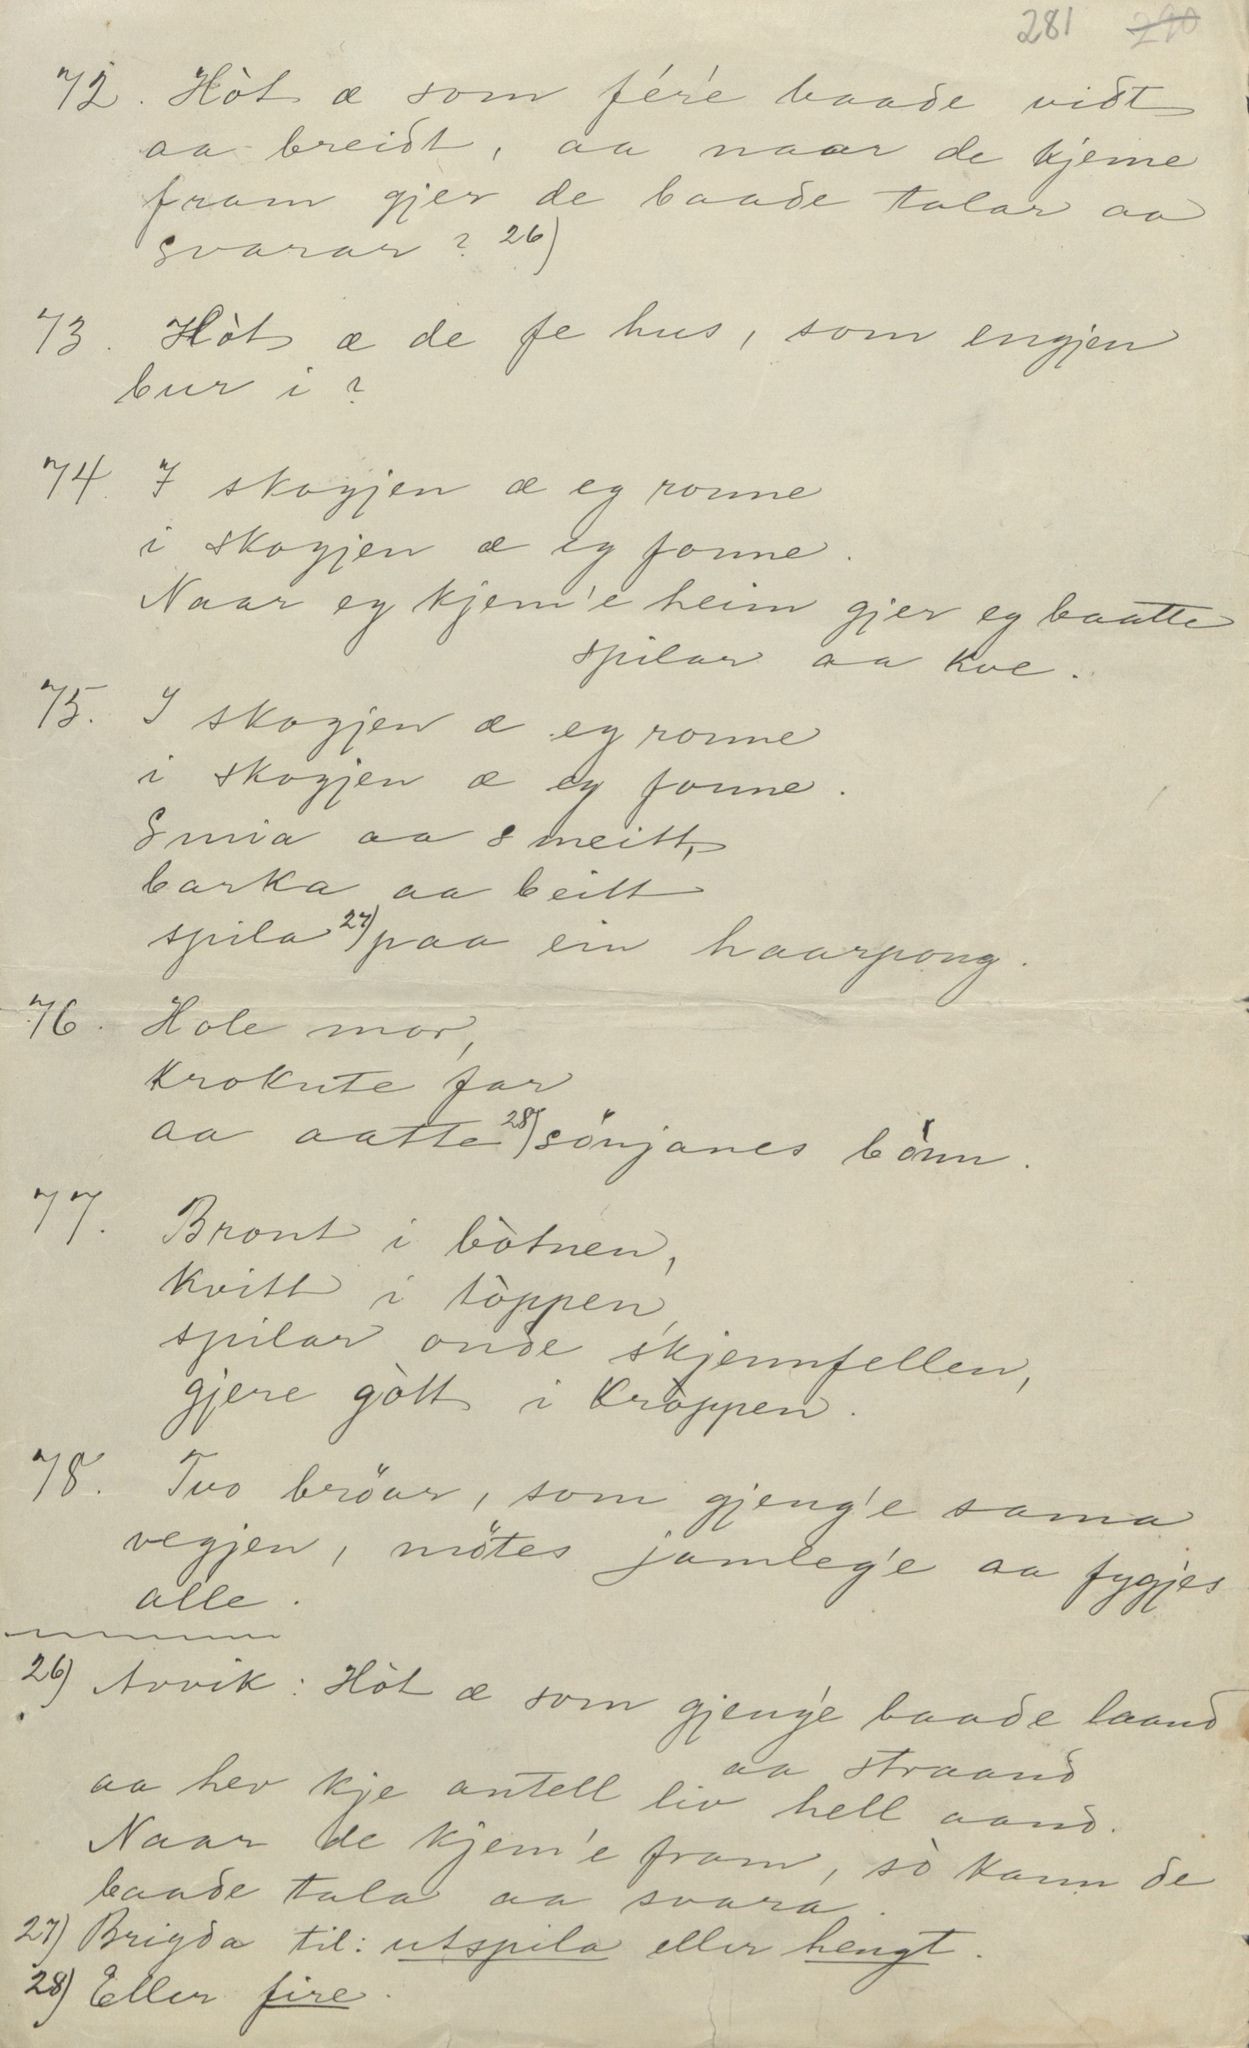 281 290
72. Hòt æ som fér'e baaðe viðt
aa breiðt, aa naar de kjeme
fram gjer de baaðe talar aa
svarar? 26)
73. Hòt æ de fe hus, som engjen
bur i?
74. I skogjen æ eg ronne
i skogjen æ eg fonne.
Naar eg kjem'e heim gjer eg baatte
spilar aa kve.
75. I skogjen æ eg ronne
i skogjen æ eg fonne.
Smia aa smeitt,
barka aa beitt
spila 27) paa ein haarpong.
76. Hole mor,
krokute far
aa aatte 28) sönjanes bònn.
77. Bront i bòtnen,
kvitt i tòppen,
spilar onde skjennfellen,
gjere gòtt i kròppen.
78. Tvo bröar, som gjeng'e sama
vegjen, mötes jamleg'e aa fygjes
alle.
26) Avvik: Hòt æ som gjeng'e baaðe laand
aa straand
aa hev kje antell liv hell aand.
Naar de kjem'e fram, sò kann de
baaðe tala aa svara.
27) Brigda til: utspila eller hengt.
28) Eller fire.